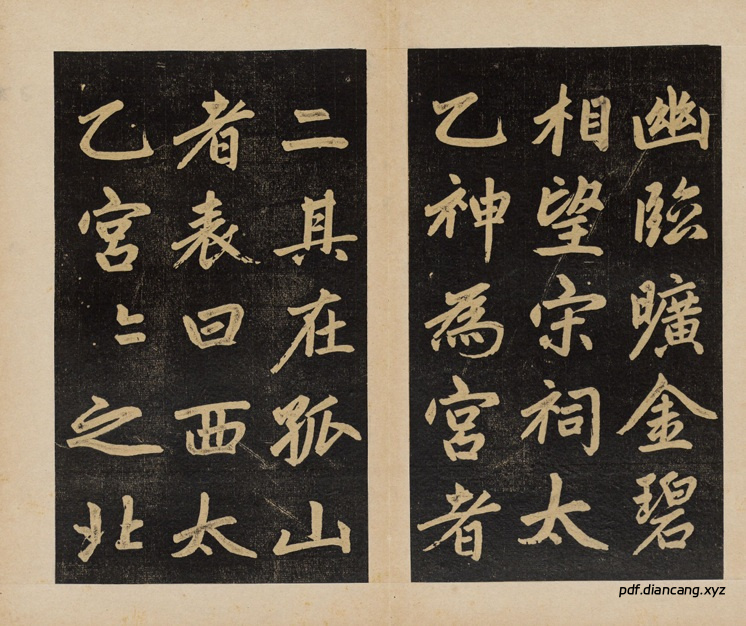 幽臨曠金碧
相望宋祠太
乙神為宮者
二其在孤山
者表曰西太
乙宮〻之北
pdf.diancang.xyz